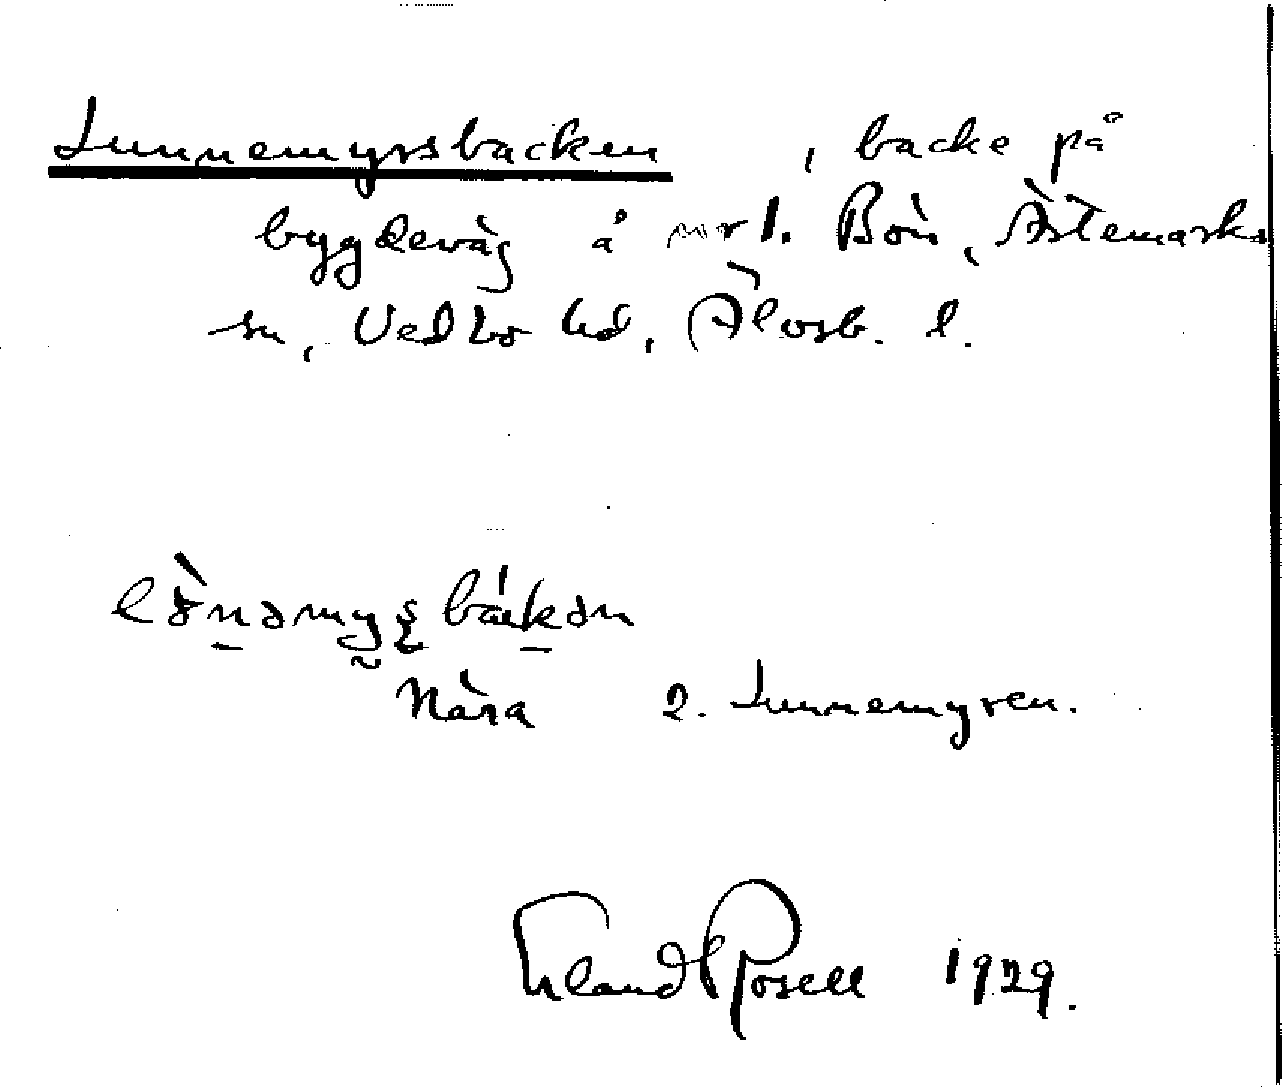 Lunnemyrsbacken, backe på
bygdeväg å nr 1. Bön, Ärtemarks
sn, Vedbo hd, Älvsb. l.
Nära 2. Lunnemyren.
Erland Rosell 1929.